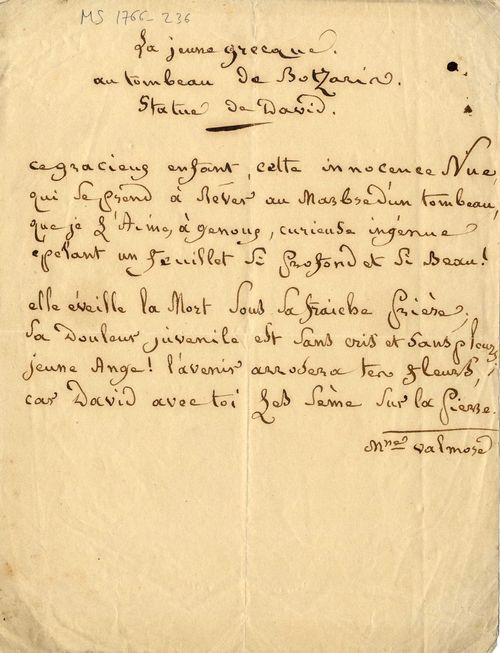 MS 1766-236
La jeune grecque.
au tombeau de Botzaris.
Statue de David.
ce gracieux enfant, cette innocence Nue,
qui se prend à Rêver au Marbre d'un tombeau,
que je L'Aime, à genoux, curieuse ingénue
épelant un feuillet si profond et si Beau!
elle éveille la Mort sous sa fraiche prière,
sa Douleur juvenile est sans cris et sans pleurs,
jeune Ange! l'avenir arrosera tes fleurs,
car David avec toi Les sème sur la pierre.
Mme valmore